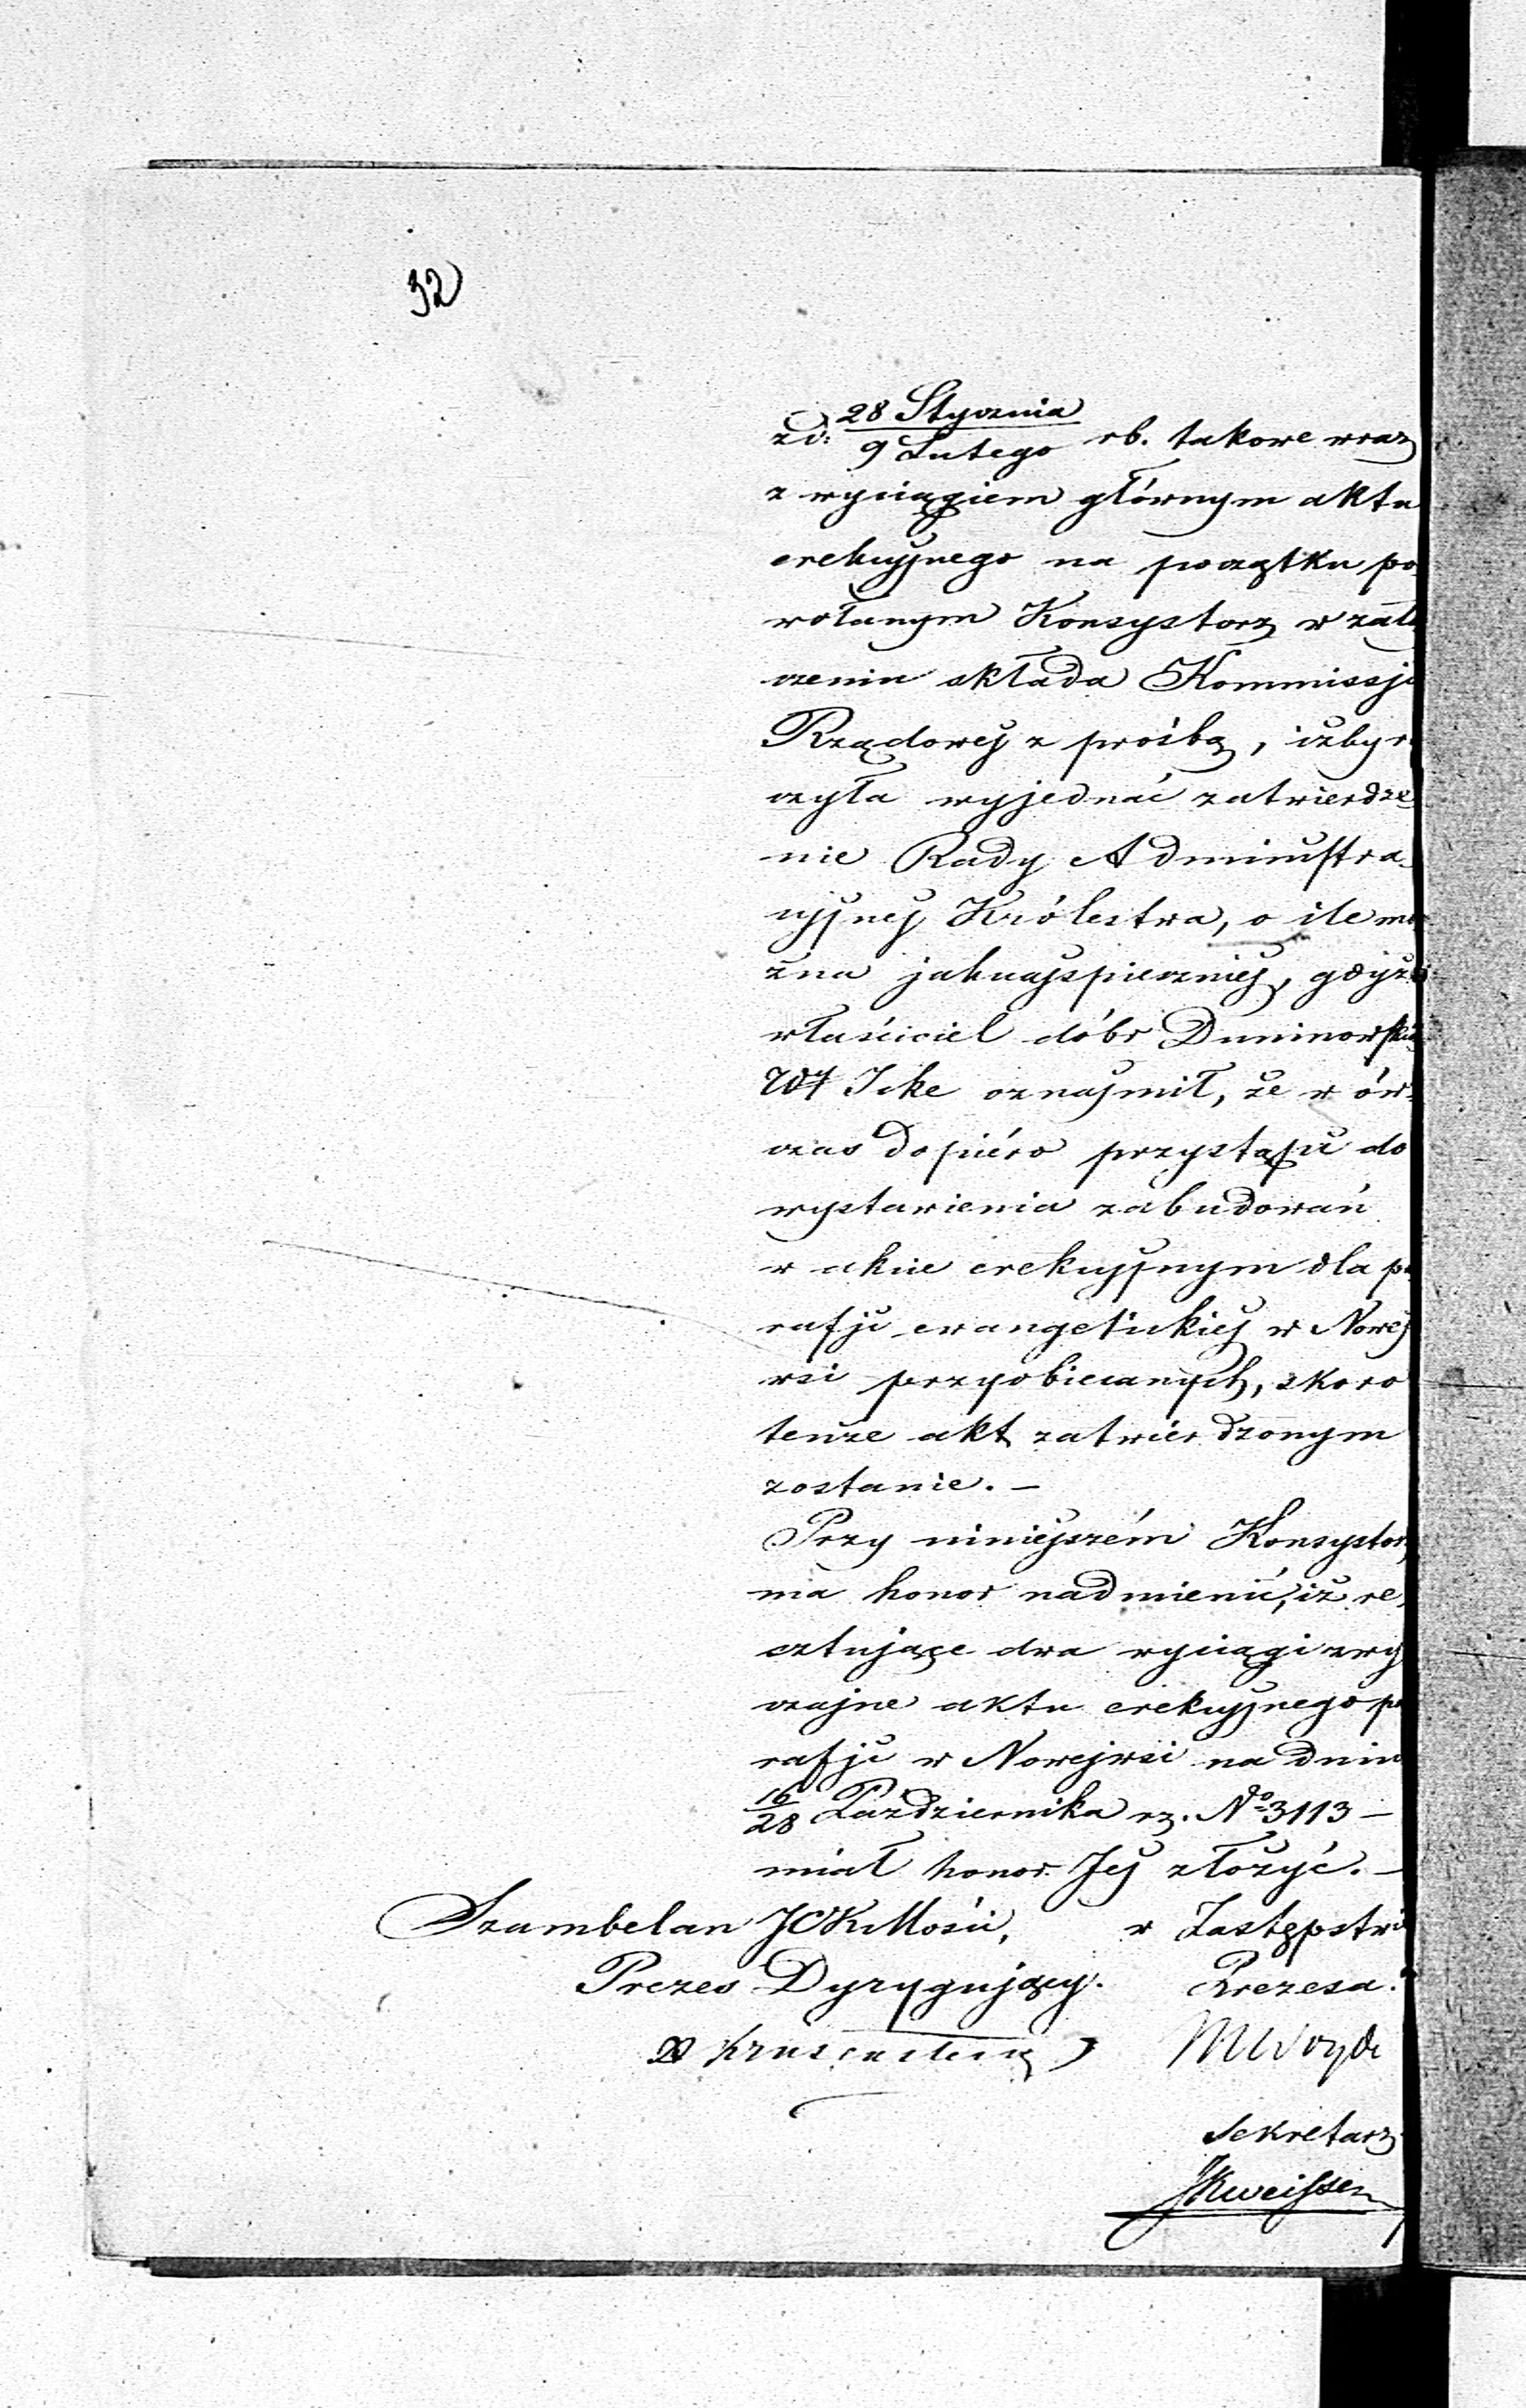 32
28 Stycznia
z d: 9 Lutego rb. takowe wraz
z wyciągiem głównym aktu
erekcyjnego na początku po-
wołanym Konsystorz w załą
czeniu składa Kommissji
Rządowej z prośbą, iżby r
czyła wyjednać zatwierdze
nie Rady Administra-
cyjnej Królestwa, o ile mo
żna jaknajspieszniej, gdyż
właściciel dóbr Duninowski
Wy Ike oznajmił, że w ów-
czas dopiéro przystąpi do
wystawienia zabudowań
w akcie erekcyjnym dla pa
rafji ewangelickiej w Nowej
wsi przyobiecanych, skoro
tenże akt zatwierdzonym
zostanie. —
Przy niniejszém Konsystorz
ma honor nadmienić, iż re-
sztujące dwa wyciągi zwy
czajne aktu erekcyjnego pa
rafji w Nowejwsi na dniu
16/28 Października rz. No 3113 —
miał honor Jej złożyć. —
Szambelan JCKMości, w Zastępstwie
Prezes Dyrygujący. Prezesa.
Krusenstern M Woyde
Sekretarz